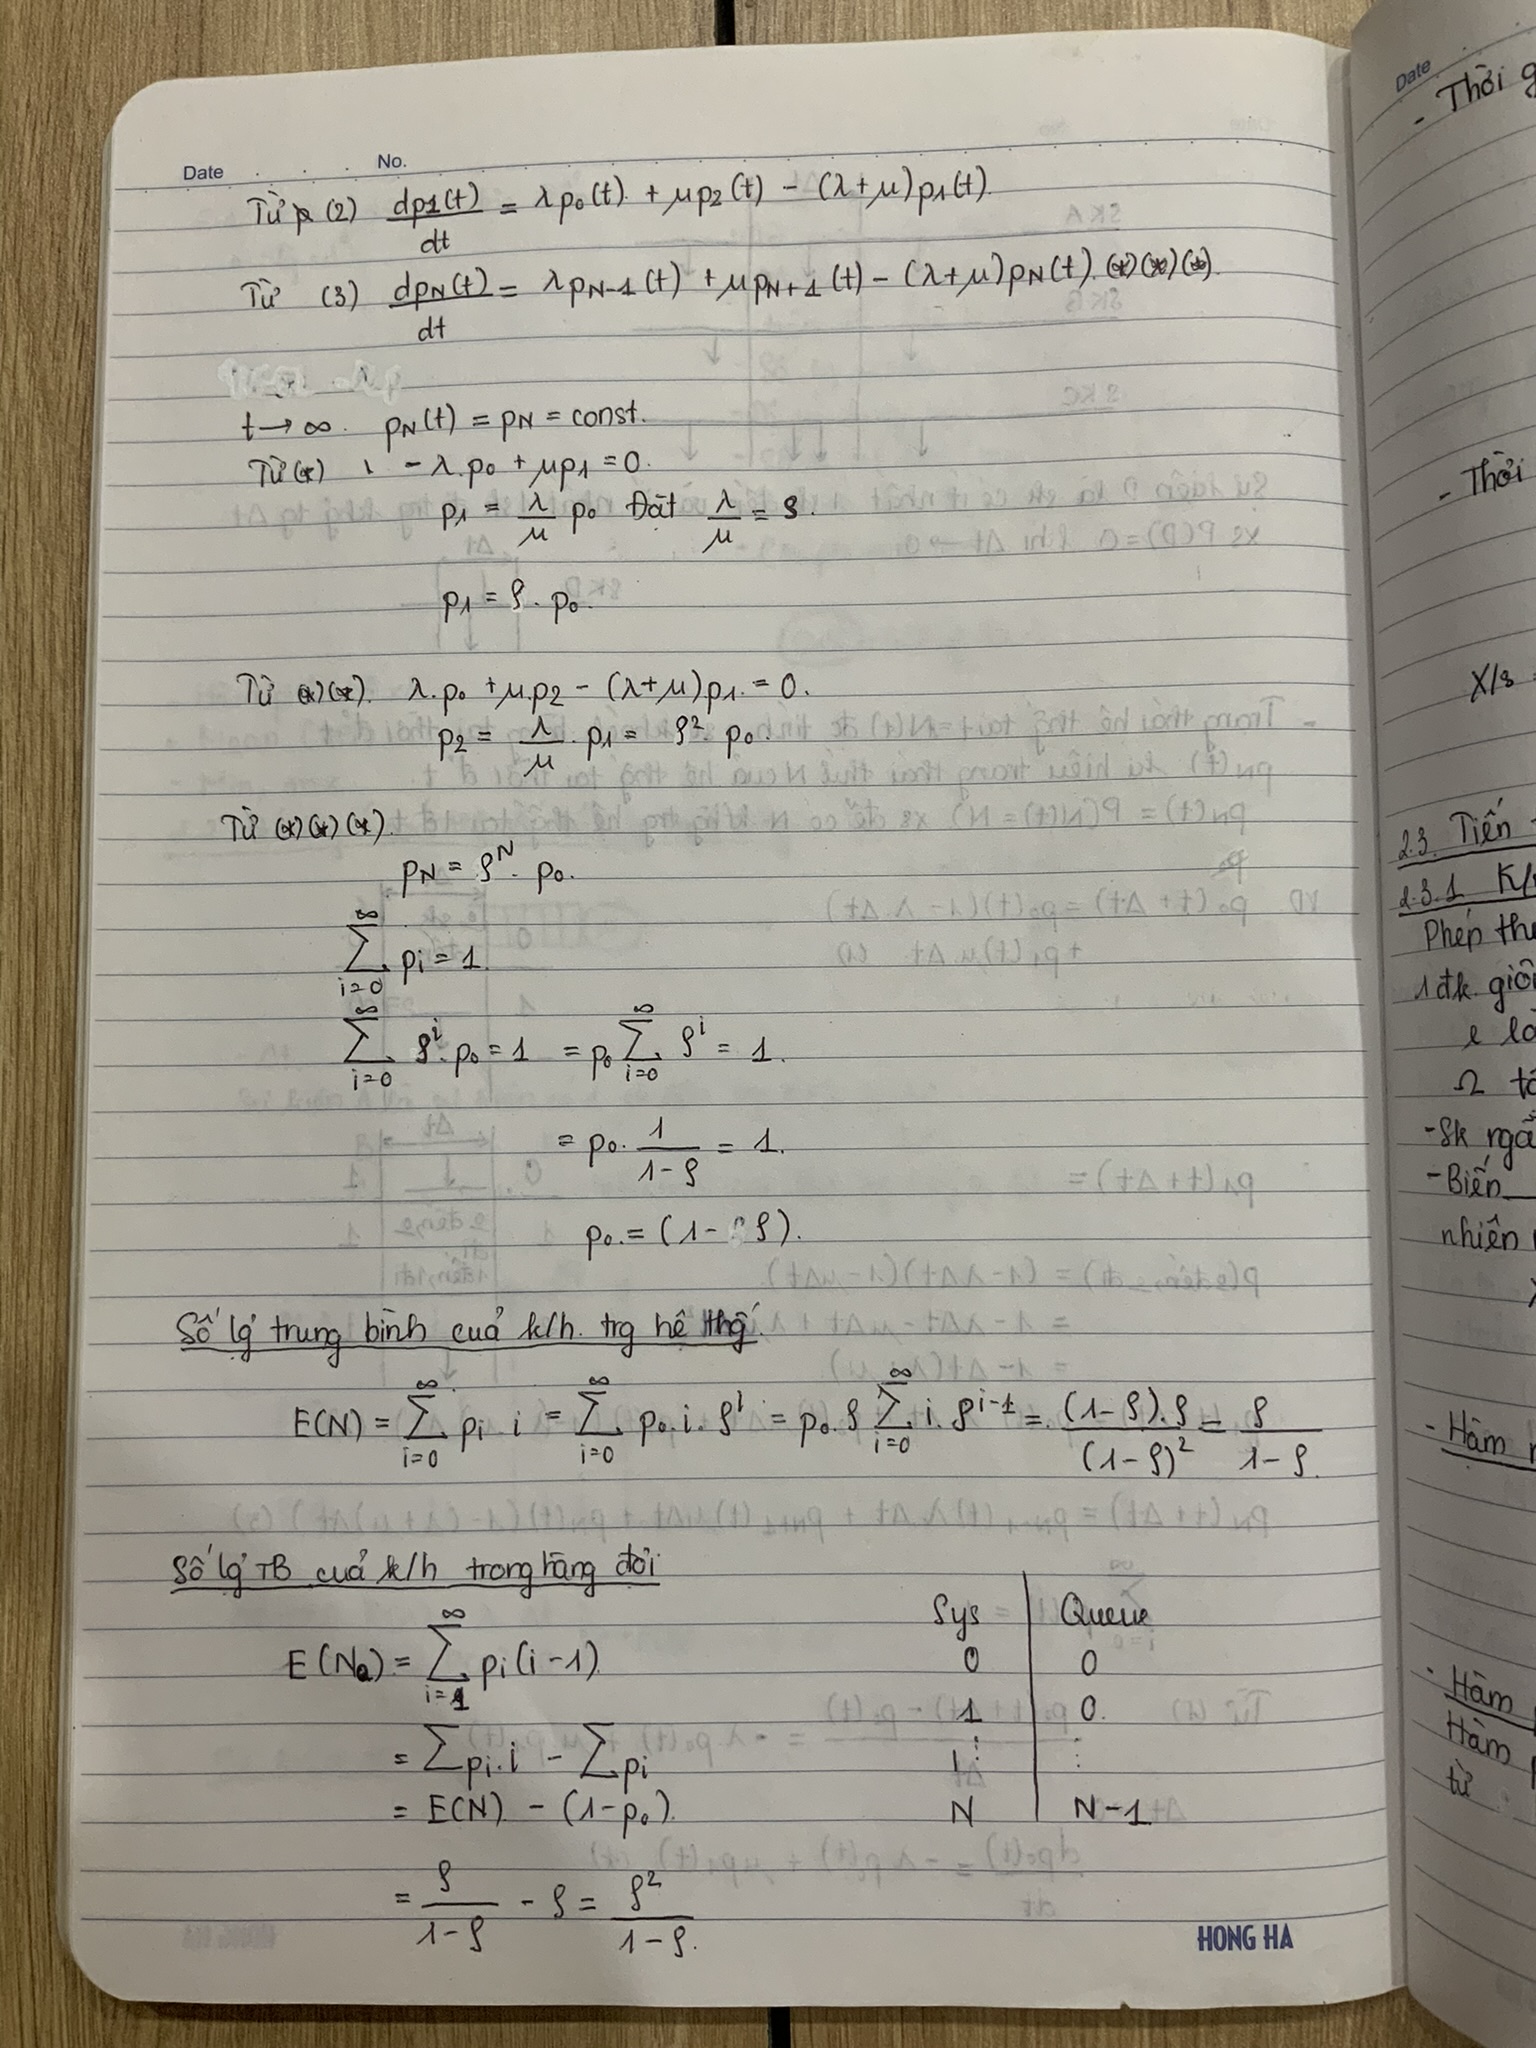 Date No.
Từ (2) dp1(t)/dt = λp₀(t) + μp₂(t) − (λ+μ)p1(t)
Từ (3) dpN(t)/dt = λpN−1(t) + μpN+1(t) − (λ+μ)pN(t) (*)(*)(*)
t → ∞. pN(t) = pN = const.
Từ (*) − λ.p₀ + μp1 = 0.
p1 = λ/μ p₀ Đặt λ/μ = ρ.
p1 = ρ. p₀.
Từ (*)(*). λ.p₀ + μ.p2 − (λ+μ)p1 = 0.
p2 = λ/μ . p1 = ρ². p₀.
Từ (*)(*)(*).
pN = ρᴺ. p₀.
∞∑i=0 pi = 1
∞∑i=0 ρⁱ. p₀ = 1 = p₀ ∞∑i=0 ρⁱ = 1.
= p₀. 1/(1−ρ) = 1.
p₀ = (1− ρ).
Số lg trung bình của k/h. trg hệ thg
E(N) = ∞∑i=0 pi i = ∞∑i=0 p₀.i.ρⁱ = p₀.ρ ∞∑i=0 i.ρⁱ⁻¹ = (1−ρ).ρ/(1−ρ)² = ρ/(1−ρ).
Số lg TB của k/h trong hàng đợi
E(NQ) = ∞∑i=1 pi(i−1)
= ∑pi.i − ∑pi
= E(N) − (1−p₀).
= ρ/(1−ρ) − ρ = ρ²/(1−ρ).
Sys Queue
0 0
1 0.
⋮ ⋮
N N−1
HONG HA
Date
- Thời
- Thời
2.3. Tiến
2.3.1
Phép
1 đk.
Ω
- Sk
- Biến
nhiên
- Hàm
- Hàm
Hàm
từ